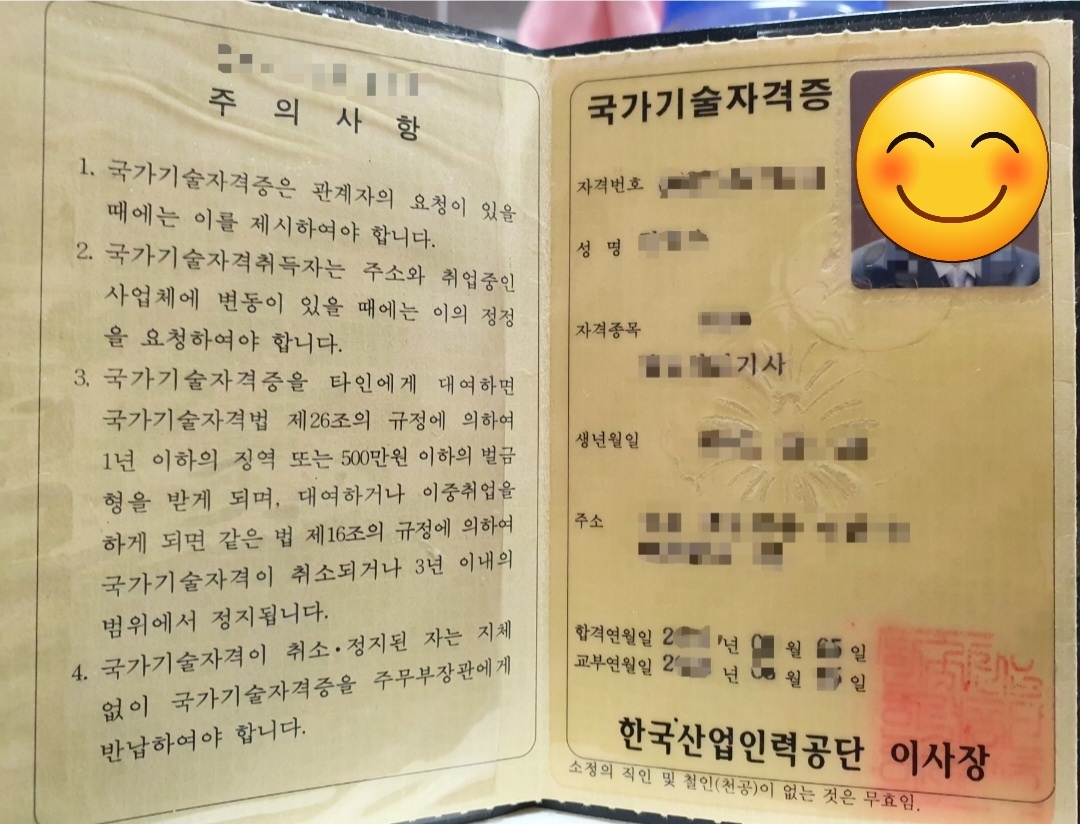 주 의 사 항
1. 국가기술자격증은 관계자의 요청이 있을
때에는 이를 제시하여야 합니다.
2. 국가기술자격취득자는 주소와 취업중인
사업체에 변동이 있을 때에는 이의 정정
을 요청하여야 합니다.
3. 국가기술자격증을 타인에게 대여하면
국가기술자격법 제26조의 규정에 의하여
1년 이하의 징역 또는 500만원 이하의 벌금
형을 받게 되며, 대여하거나 이중취업을
하게 되면 같은 법 제16조의 규정에 의하여
국가기술자격이 취소되거나 3년 이내의
범위에서 정지됩니다.
4. 국가기술자격이 취소·정지된 자는 지체
없이 국가기술자격증을 주무부장관에게
반납하여야 합니다.
국가기술자격증
자격번호
성 명
자격종목
기사
생년월일
주소
합격연월일 년 월 일
교부연월일 년 월 일
한국산업인력공단 이사장
소정의 직인 및 철인(천공)이 없는 것은 무효임.